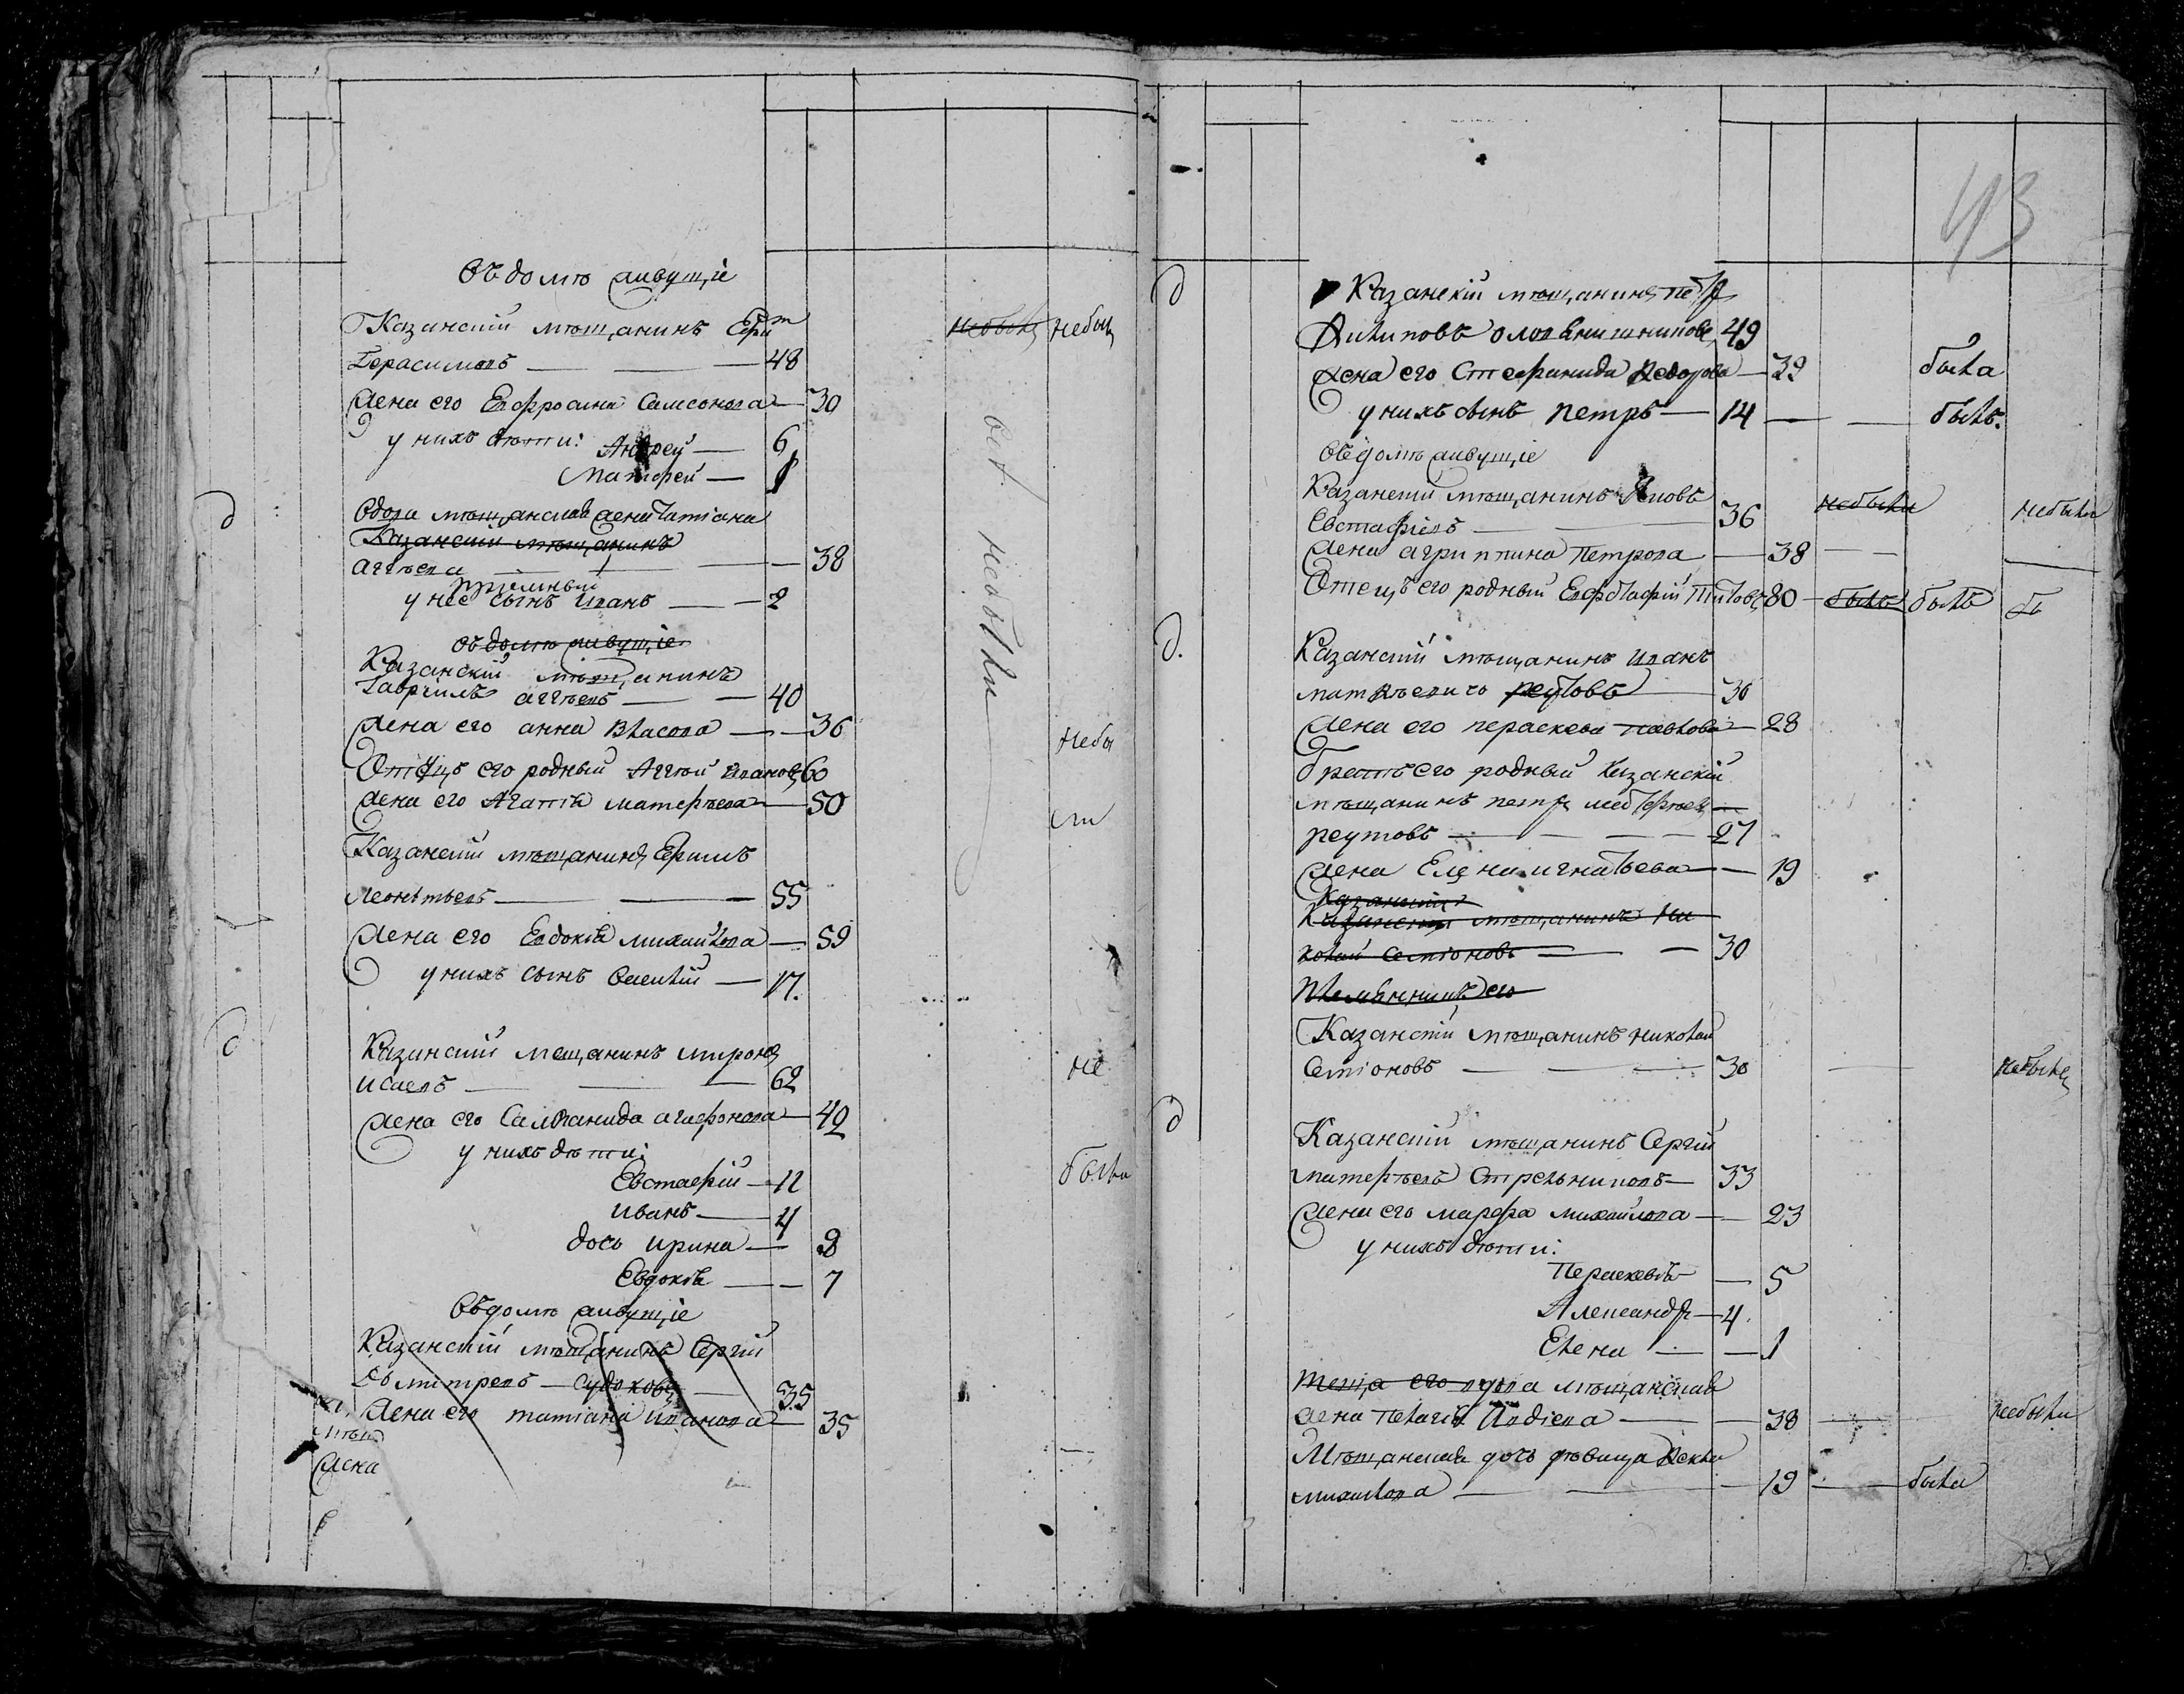 Въ домѣ живущіе
Казанскій мѣщанинъ
Герасимовъ — 48 небыли небыли
Жена его Евфросина Самсонова — 30
у нихъ дѣти: Андрей — 6
Матфей —
д
Вдова мѣщанская жена Татіана
Казанскій мѣщанинъ
Аггѣева — 38
пріемный
у нее сынъ Иванъ — 2
Въ домѣ живущіе
Казанскій мѣщанинъ
Гавріилъ Аггѣевъ — 40
Жена его Анна Власова — 36
Отецъ его родный Аггѣй Ивановъ 60
Жена его Агапія Матфѣева — 50
Казанскій мѣщанинъ Ермилъ
Леонтьевъ — 55
Жена его Евдокія Михайлова — 59
у нихъ сынъ — 17.
все небыли
Казанскій мещанинъ Миронъ
Исаевъ — 62 не
Жена его Саломанида Агафонова — 42
у нихъ дѣти:
Евстафій — 12 были
Иванъ — 4
дочь Ирина —
Евдокія — 7
Въ домѣ живущіе
Казанскій мѣщанинъ Сергій
Дьмитревъ — Судоковъ — 35
Жена его Татіана Иванова — 35
Жена
43
д
Казанскій мѣщанинъ Петръ
Филиповъ 49
Жена его Стефанида Федорова — 39 была
у нихъ сынъ Петръ — 14 — былъ.
Въ домѣ живущіе
Казанскій мѣщанинъ Яковъ
Евстафіевъ — 36 небыли небыли
Жена Агриппина Петрова — 38
Отецъ его родный Евфстафій Титовъ 80 — былъ былъ
д.
Казанскій мѣщанинъ Иванъ
Матвѣевичь Реутовъ — 30
Жена его Параскева Павлова — 28
братъ его родный Казанскій
мѣщанинъ Петръ
Реутовъ — 27
Жена Елена Игнатьева — 19
Казанскій
Казанскій мѣщанинъ Ни
колай Семіоновъ — 30
Племянникъ его
Казанскій мѣщанинъ Николай
Семіоновъ — 30 — небылъ
д
Казанскій мѣщанинъ Сергій
Матфѣевъ Стрельниковъ — 33
Жена его Марфа Михайлова — 23
у нихъ дѣти:
Параскевія — 5
Александръ — 4
Елена — 1
Теща его вдова мѣщанская
жена Пелагія — 38 — небыли
Мѣщанская дочь дѣвица Фекла
Михайлова — 19 — была